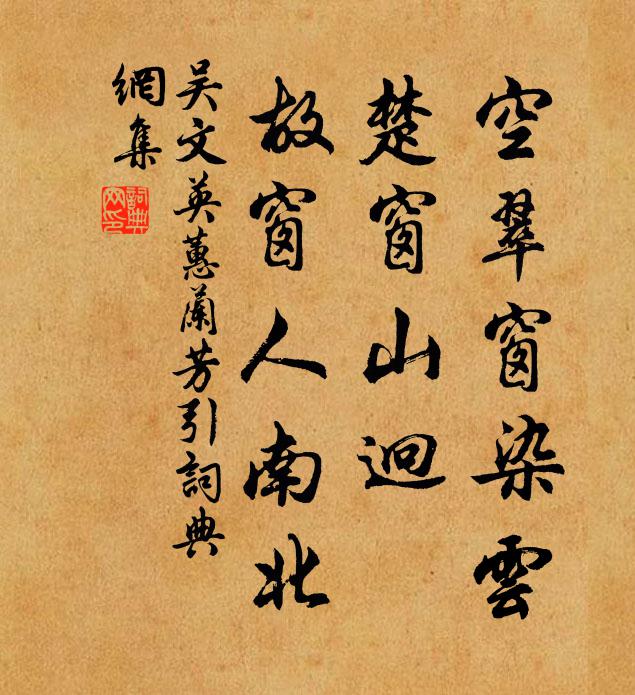 空翠窗染雲
楚窗山迥
故窗人南北
吴文英蕙蘭芳引詞典
網集
詞典網印